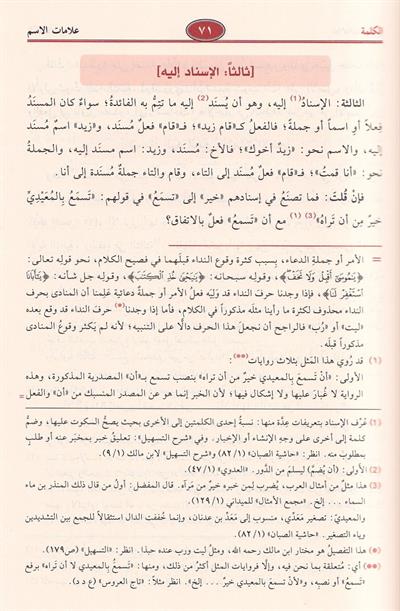 الكلمة ٧١ علامات الاسم
[ثالثاً: الإسناد إليه]
الثالثة: الإسنادُ(1) إليه، وهو أن يُسنَد(2) إليه ما تتِمُّ به الفائدةُ؛ سواءٌ كان المسنَدُ
فِعلاً أو اسماً أو جملةً؛ فالفعلُ كـ«قام زيد»؛ فـ«قام» فعلٌ مُسنَد، و«زيد» اسمٌ مُسنَد
إليه، والاسم نحو: «زيدٌ أخوك»؛ فالأخ: مُسنَد، وزيد: اسم مسند إليه، والجملة
نحو: «أنا قمتُ»؛ فـ«قام» فعلٌ مُسنَد إلى التاء، وقام والتاء جملة مُسندة إلى أنا.
فإن قُلتَ: فما تصنَعُ في إسنادهم «خير» إلى «تسمَعُ» في قولهم: «تَسمَعُ بِالمُعَيْدِيِّ
خيرٌ مِن أن تَراهُ»(3) (١) مع أن «تَسمَعُ» فعلٌ بالاتفاق؟
= الأمر أو جملة الدعاء، بِسبب كثرة وقوع النداء قبلَهما في فصيح الكلام، نحو قولِه تعالى:
﴿يَمُوسَىٰٓ أَقْبِلْ وَلَا تَخَفْ﴾، وقوله سبحانه: ﴿يَيَحْيَىٰ خُذِ ٱلْكِتَٰبَ﴾، وقوله جل شأنه: ﴿يَٰٓأَبَانَا
ٱسْتَغْفِرْ لَنَا﴾، فإذا وجدنا حرفَ النداء قد وَلِيَه فعلُ الأمر أو جملة دعائية عَلِمنا أن المنادى بحرف
النداء محذوف لكثرة ما رأينا مثلَه مذكوراً في الكلام، فأما إذا وجدنا(*) حرفَ النداء قد وقع بعده
«ليت» أو «رُب» فالراجح أن نجعلَ هذا الحرف دالًّا على التنبيه؛ لأنه لم يَكثر وقوعُ المنادى
مذكوراً قبلَه.
(١) قد رُوِي هذا المَثل بثلاث روايات(**):
الأولى: «أنْ تَسمَعَ بالمعيدي خيرٌ من أن تراه» بنصب تسمع بـ«أن» المصدرية المذكورة، وهذه
الرواية لا غُبارَ عليها ولا إشكال فيها؛ لأن الخبر إنما هو عن المصدر المنسبك من «أن» والفعل =
(1) عُرِّف الإسناد بتعريفات عِدَّة منها: نسبةُ إحدى الكلمتين إلى الأخرى بحيث يصحُّ السكوت عليها، وضمُّ
كلمة إلى أخرى على وجهِ الإنشاء أو الإخبار. وفي «شرح التسهيل»: تعليقُ خبرٍ بمخبَرٍ عنه أو طلبٍ
بمطلوبٍ منه. انظر: «حاشية الصبان» (٨٢/١) و«شرح التسهيل» لابن مالك (٩/١).
(2) الأولى: (أن يُضمَّ) ليسلم من الدَّور. «العدوي» (٤٧/١).
(3) هذا مثلٌ من أمثال العرب، يُضرب لِمن خبره خيرٌ من مَرآه. قال المفضل: أولُ من قال ذلك المنذر بن ماء
السماء ... إلخ. «مجمع الأمثال» للميداني (١٢٩/١).
والمعيديّ: تصغير مَعَدِّي، منسوب إلى مَعَدّ بن عدنان، وإنما خُففت الدال استثقالاً للجمع بين التشديدين
وياء التصغير. «حاشية الصبان» (٨٢/١).
(*) هذا التفصيل هو مختار ابن مالك رحمه الله، ومثلُ ليت ورب عنده حبذا. انظر: «التسهيل» (ص١٧٩).
(**) أي: مُتعلقة بما نحن فيه، وإلا فروايات المثل أكثرُ من ذلك، ومنها: «تَسمَعُ بالمعيدي لا أن تَراه» برفع
«تسمعُ» أو نصبِه، و«لأنْ تَسمَعَ بالمعيدي خيرٌ ... إلخ». انظر مثلاً: «تاج العروس» (ع د د).